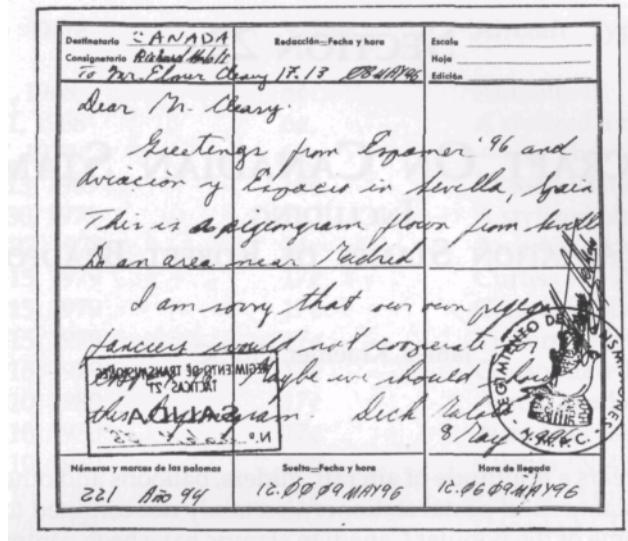 Destinatario CANADA
Consignatario Richard
To Mr. Elmer Cleary
Redacción—Fecha y hora
17.13 08 MAY 96
Escala
Hoja
Edición
Dear Mr. Cleary.
Greetings from Espamer '96 and
Aviación y Espacio in Sevilla, Spain
This is a pigeongram flown from Sevilla
to an area near Madrid
I am sorry that our own pigeon
fanciers would not cooperate for
Maybe we should show
this pigeongram. Dick
8 May
REGIMIENTO DE TRANSMISIONES
TACTICAS 21
SALIDA
N.º
REGIMIENTO DE TRANSMISIONES
Números y marcas de las palomas
221 Año 94
Suelta—Fecha y hora
12.00 09 MAY 96
Hora de llegada
12.06 09 MAY 96